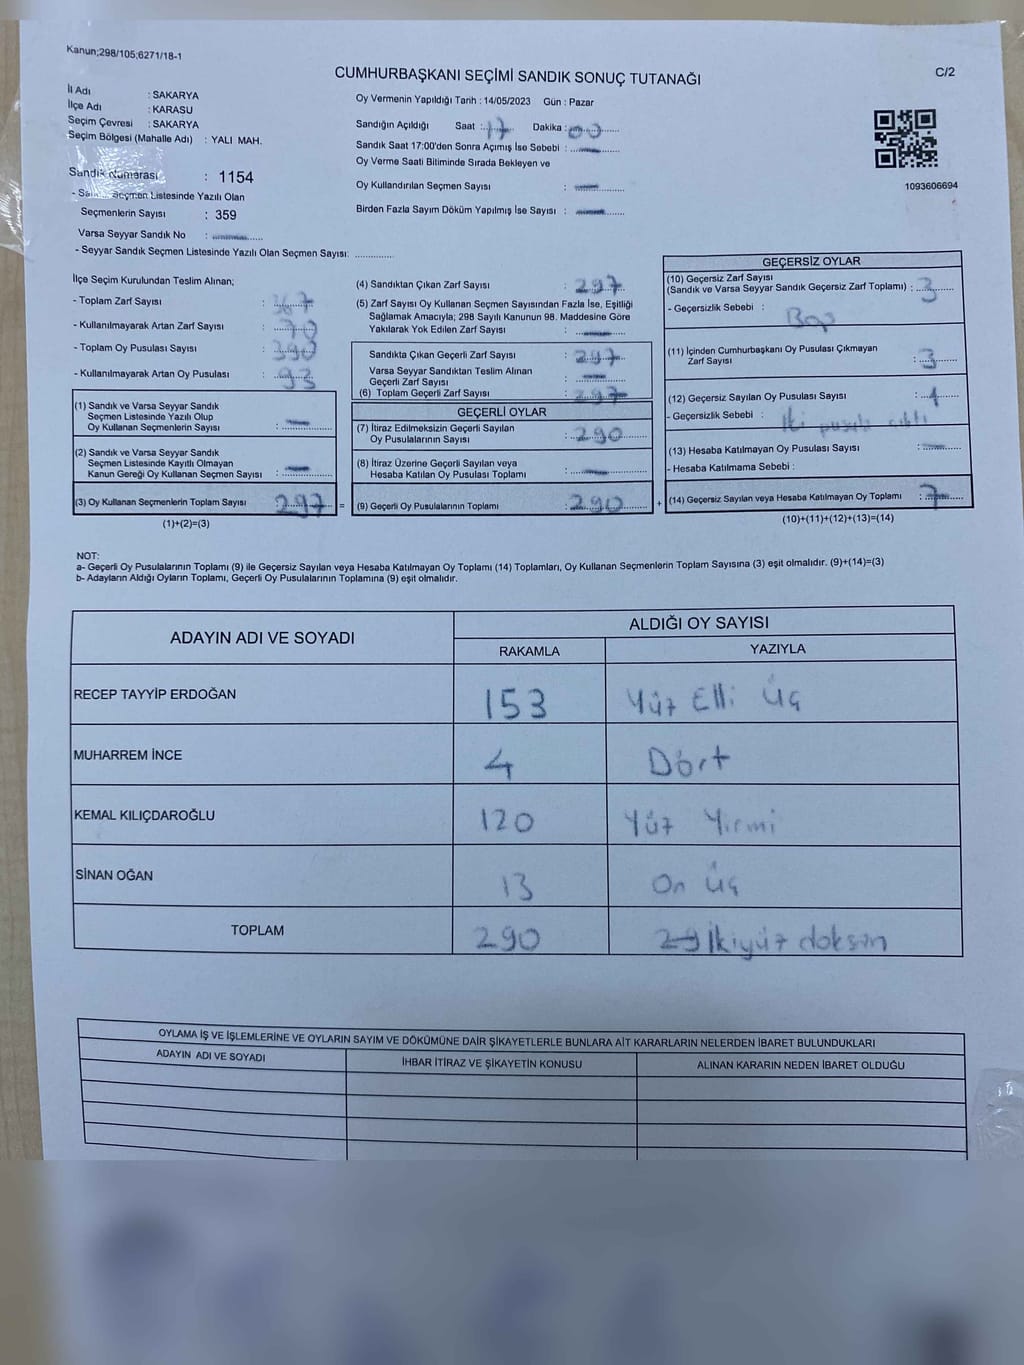 Kanun;298/105;6271/18-1
C/2
CUMHURBAŞKANI SEÇİMİ SANDIK SONUÇ TUTANAĞI
İl Adı : SAKARYA
İlçe Adı : KARASU
Seçim Çevresi : SAKARYA
Seçim Bölgesi (Mahalle Adı) : YALI MAH.
Sandık Numarası : 1154
- Sandık Seçmen Listesinde Yazılı Olan
Seçmenlerin Sayısı : 359
Varsa Seyyar Sandık No :
- Seyyar Sandık Seçmen Listesinde Yazılı Olan Seçmen Sayısı: ..............
Oy Vermenin Yapıldığı Tarih : 14/05/2023 Gün : Pazar
Sandığın Açıldığı Saat : 17 Dakika : 00
Sandık Saat 17:00'den Sonra Açımış İse Sebebi :
Oy Verme Saati Bitiminde Sırada Bekleyen ve
Oy Kullandırılan Seçmen Sayısı :
Birden Fazla Sayım Döküm Yapılmış İse Sayısı :
1093606694
İlçe Seçim Kurulundan Teslim Alınan;
- Toplam Zarf Sayısı : 367
- Kullanılmayarak Artan Zarf Sayısı : 70
- Toplam Oy Pusulası Sayısı : 390
- Kullanılmayarak Artan Oy Pusulası : 93
(1) Sandık ve Varsa Seyyar Sandık
Seçmen Listesinde Yazılı Olup
Oy Kullanan Seçmenlerin Sayısı :
(2) Sandık ve Varsa Seyyar Sandık
Seçmen Listesinde Kayıtlı Olmayan
Kanun Gereği Oy Kullanan Seçmen Sayısı :
(3) Oy Kullanan Seçmenlerin Toplam Sayısı : 297 =
(1)+(2)=(3)
(4) Sandıktan Çıkan Zarf Sayısı : 297
(5) Zarf Sayısı Oy Kullanan Seçmen Sayısından Fazla İse, Eşitliği
Sağlamak Amacıyla; 298 Sayılı Kanunun 98. Maddesine Göre
Yakılarak Yok Edilen Zarf Sayısı :
Sandıkta Çıkan Geçerli Zarf Sayısı : 297
Varsa Seyyar Sandıktan Teslim Alınan
Geçerli Zarf Sayısı :
(6) Toplam Geçerli Zarf Sayısı : 297
GEÇERLİ OYLAR
(7) İtiraz Edilmeksizin Geçerli Sayılan
Oy Pusulalarının Sayısı : 290
(8) İtiraz Üzerine Geçerli Sayılan veya
Hesaba Katılan Oy Pusulası Toplamı :
(9) Geçerli Oy Pusulalarının Toplamı : 290 +
GEÇERSİZ OYLAR
(10) Geçersiz Zarf Sayısı
(Sandık ve Varsa Seyyar Sandık Geçersiz Zarf Toplamı) : 3
- Geçersizlik Sebebi : Boş
(11) İçinden Cumhurbaşkanı Oy Pusulası Çıkmayan
Zarf Sayısı : 3
(12) Geçersiz Sayılan Oy Pusulası Sayısı : 1
- Geçersizlik Sebebi : İki pusula çıktı
(13) Hesaba Katılmayan Oy Pusulası Sayısı :
- Hesaba Katılmama Sebebi :
(14) Geçersiz Sayılan veya Hesaba Katılmayan Oy Toplamı : 7
(10)+(11)+(12)+(13)=(14)
NOT:
a- Geçerli Oy Pusulalarının Toplamı (9) ile Geçersiz Sayılan veya Hesaba Katılmayan Oy Toplamı (14) Toplamları, Oy Kullanan Seçmenlerin Toplam Sayısına (3) eşit olmalıdır. (9)+(14)=(3)
b- Adayların Aldığı Oyların Toplamı, Geçerli Oy Pusulalarının Toplamına (9) eşit olmalıdır.
ADAYIN ADI VE SOYADI ALDIĞI OY SAYISI
RAKAMLA YAZIYLA
RECEP TAYYİP ERDOĞAN 153 Yüz Elli Üç
MUHARREM İNCE 4 Dört
KEMAL KILIÇDAROĞLU 120 Yüz Yirmi
SİNAN OĞAN 13 On Üç
TOPLAM 290 29 İkiyüz doksan
OYLAMA İŞ VE İŞLEMLERİNE VE OYLARIN SAYIM VE DÖKÜMÜNE DAİR ŞİKAYETLERLE BUNLARA AİT KARARLARIN NELERDEN İBARET BULUNDUKLARI
ADAYIN ADI VE SOYADI İHBAR İTİRAZ VE ŞİKAYETİN KONUSU ALINAN KARARIN NEDEN İBARET OLDUĞU